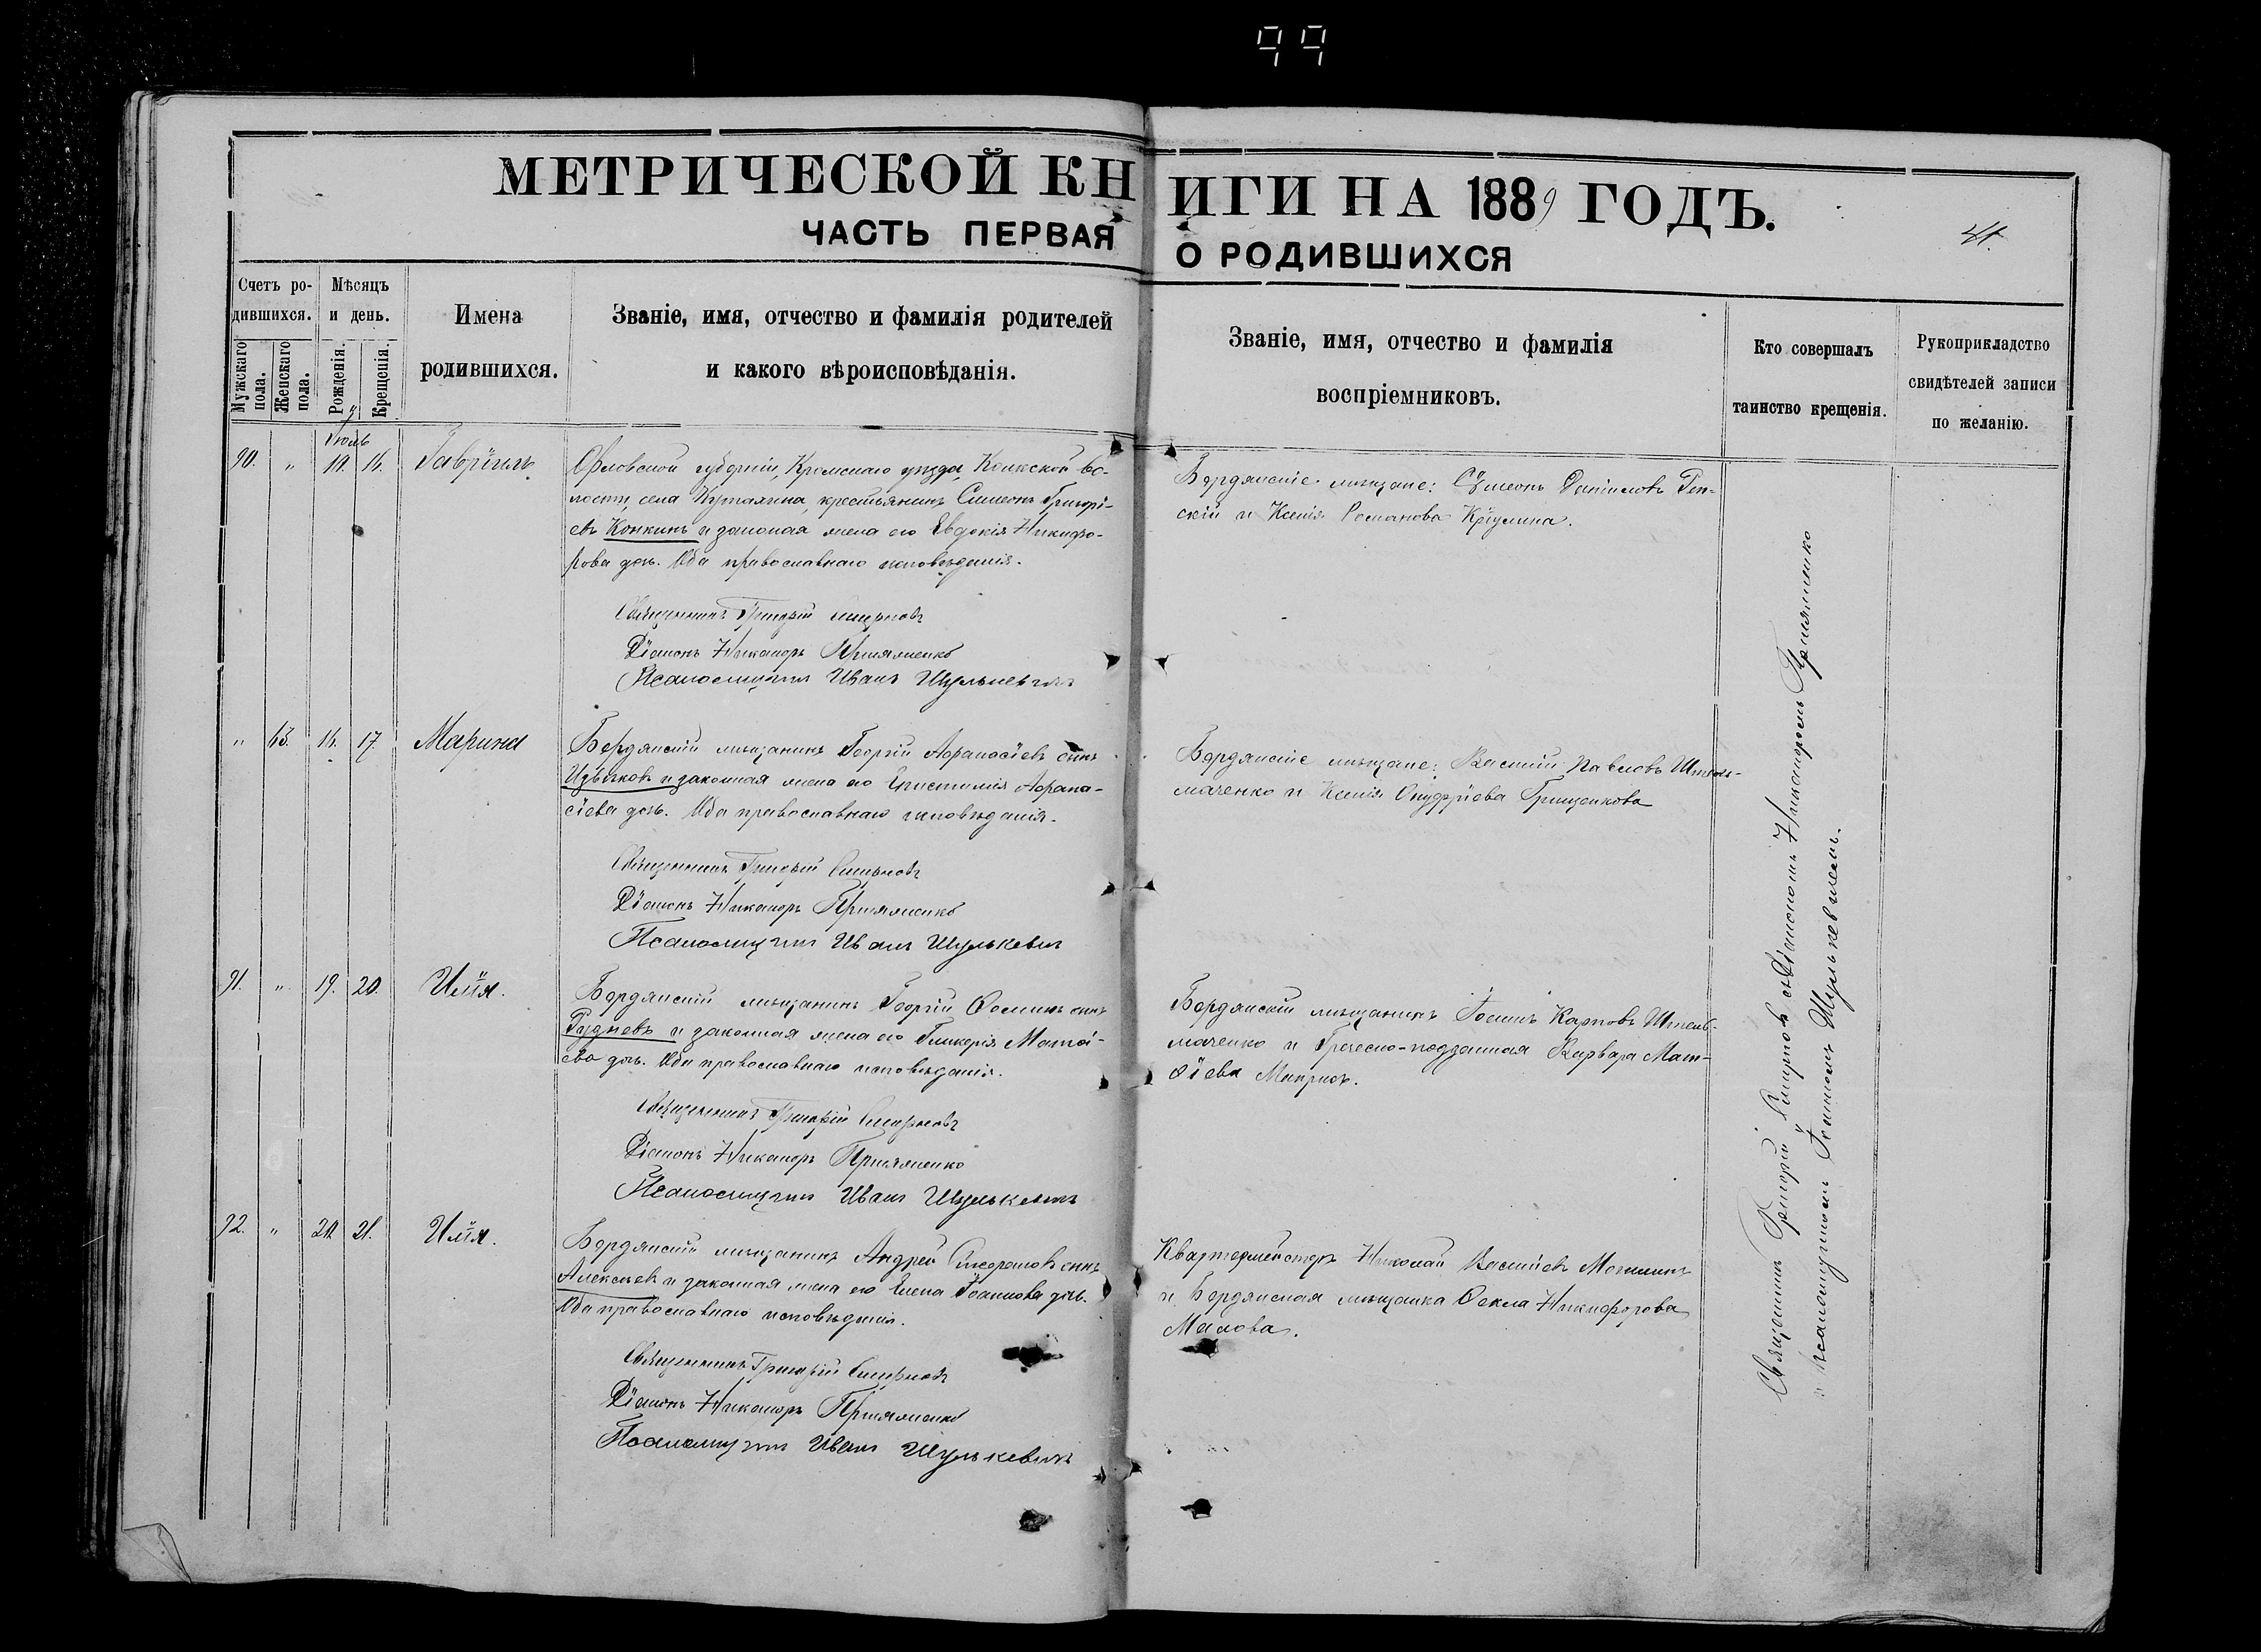 99
МЕТРИЧЕСКОЙ КНИГИ НА 1889 ГОДЪ.
ЧАСТЬ ПЕРВАЯ О РОДИВШИХСЯ
41.
Счетъ ро-
дившихся.
Мужскаго пола.
Женскаго пола.
Мѣсяцъ
и день.
Рожденія.
Крещенія.
Имена
родившихся.
Званіе, имя, отчество и фамилія родителей
и какого вѣроисповѣданія.
Званіе, имя, отчество и фамилія
воспріемниковъ.
Кто совершалъ
таинство крещенія.
Рукоприкладство
свидѣтелей записи
по желанію.
Іюль
90. " 10. 16. Гавріилъ
Орловской губерніи, Кромскаго уѣзда, во-
лости, села крестьянинъ Симеонъ Григорі-
евъ Конкинъ и законная жена его Евдокія Никифо-
рова дочь. Оба православнаго исповѣданія.
Бердянскіе мѣщане: Сѵмеонъ Даніиловъ
скій и Ксенія Романова
Священникъ Григорій Смирновъ
Діаконъ Никаноръ Пришляменко
Псаломщикъ Иванъ Шулькевичъ
" 63. 16. 17. Марина
Бердянскій мѣщанинъ Георгій Аѳанасіевъ сынъ
Извѣковъ и законная жена его Христинія Аѳана-
сіева дочь. Оба православнаго исповѣданія.
Бердянскіе мѣщане: Василій Павловъ Штель-
маченко и Ксенія Онуфріева Грищенкова
Священникъ Григорій Смирновъ
Діаконъ Никаноръ
Псаломщикъ Иванъ Шулькевичъ
91. " 19. 20. Илія.
Бердянскій мѣщанинъ Георгій Ѳоминъ сынъ
Рудневъ и законная жена его Гликерія Матѳі-
ева дочь. Оба православнаго исповѣданія.
Бердянскій мѣщанинъ Іоаннъ Карповъ Штель-
маченко и Греческо-подданная Варвара Мат-
ѳіева
Священникъ Григорій Смирновъ
Діаконъ Никаноръ
Псаломщикъ Иванъ Шулькевичъ
92. " 20. 21. Илія.
Бердянскій мѣщанинъ Андрей сынъ
Алексѣевъ и законная жена его Елена Іоаннова дочь.
Оба православнаго исповѣданія.
Квартермейстеръ Николай Василіевъ
и Бердянская мѣщанка Ѳекла Никифорова
Малова.
Священникъ Григорій Смирновъ
Діаконъ Никаноръ
Псаломщикъ Иванъ Шулькевичъ
Священникъ Григорій Смирновъ съ Діакономъ Никаноромъ
и псаломщикомъ Іоанномъ Шулькевичемъ.